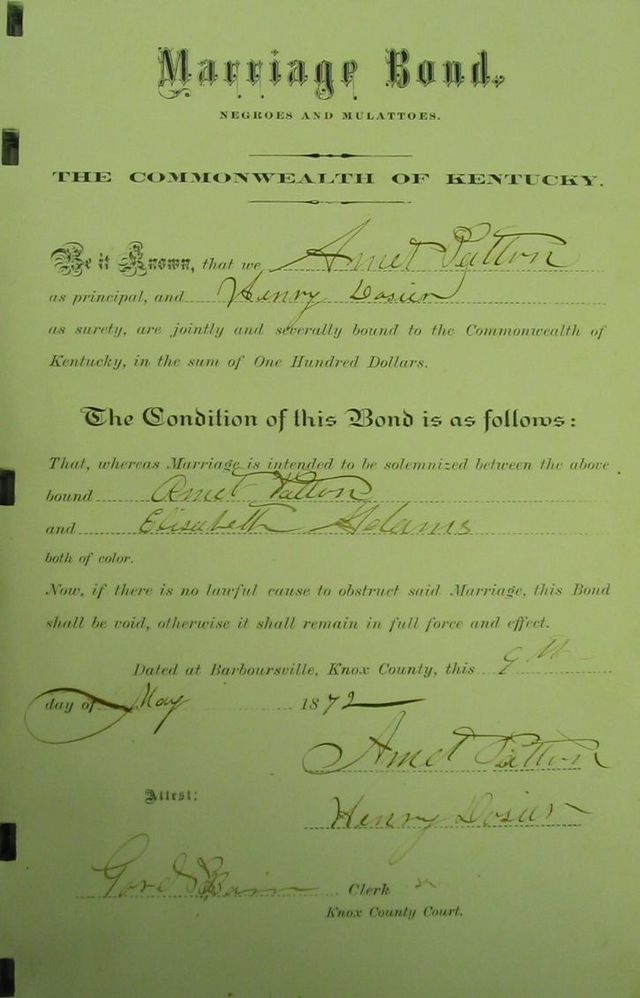 Marriage Bond.
NEGROES AND MULATTOES.
THE COMMONWEALTH OF KENTUCKY.
Be it Known, that we Amet Patton
as principal, and Henry Dosier
as surety, are jointly and severally bound to the Commonwealth of
Kentucky, in the sum of One Hundred Dollars.
The Condition of this Bond is as follows:
That, whereas Marriage is intended to be solemnized between the above
bound Amet Patton
and Elisabeth Adams
both of color.
Now, if there is no lawful cause to obstruct said Marriage, this Bond
shall be void, otherwise it shall remain in full force and effect.
Dated at Barboursville, Knox County, this 9th
day of May 1872
Amet Patton
Attest:
Henry Dosier
Clerk
Knox County Court.